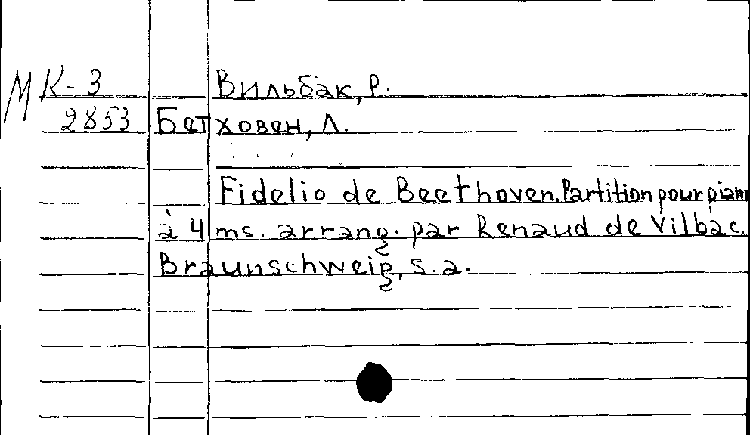 МК-3 Вильбак, Р.
2853 Бетховен, Л.
Fidelio de Beethoven. Partition pour piano
à 4 ms. arrang. par Renaud de Vilbac.
Braunschweig, s.a.